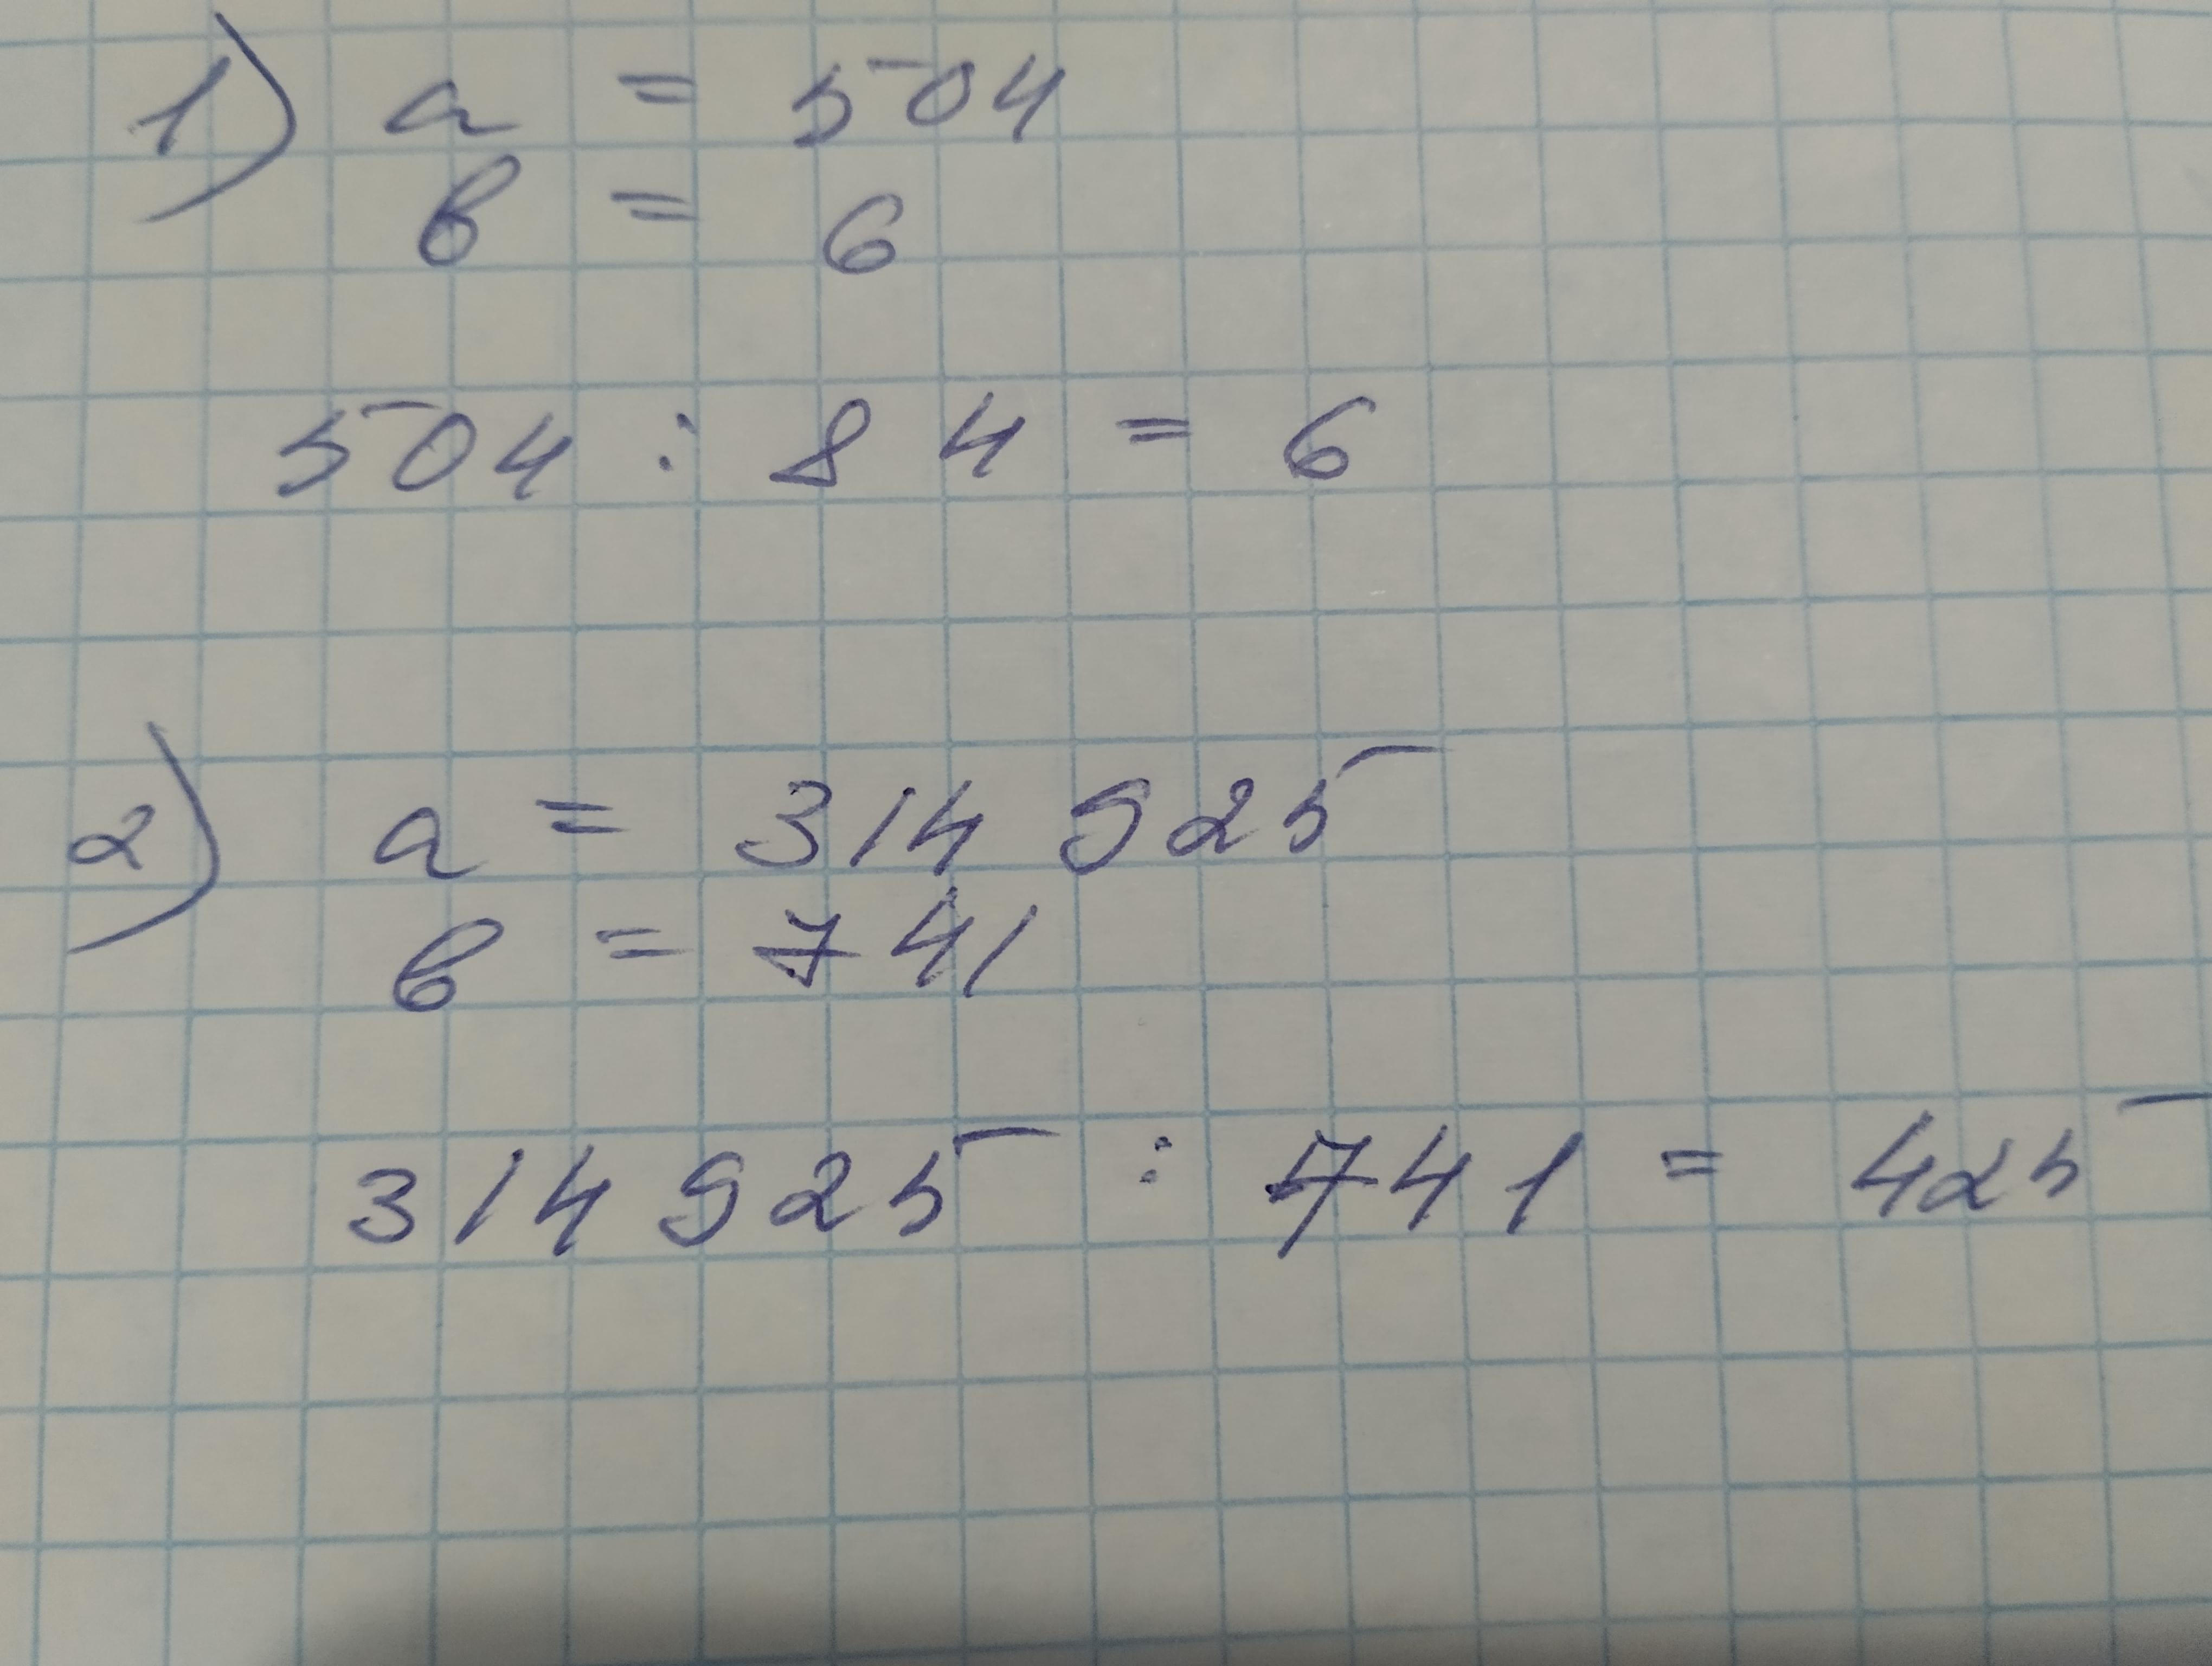 1) a = 504
в = 6
504 : 84 = 6
2) a = 314 925
в = 741
314 925 : 741 = 425